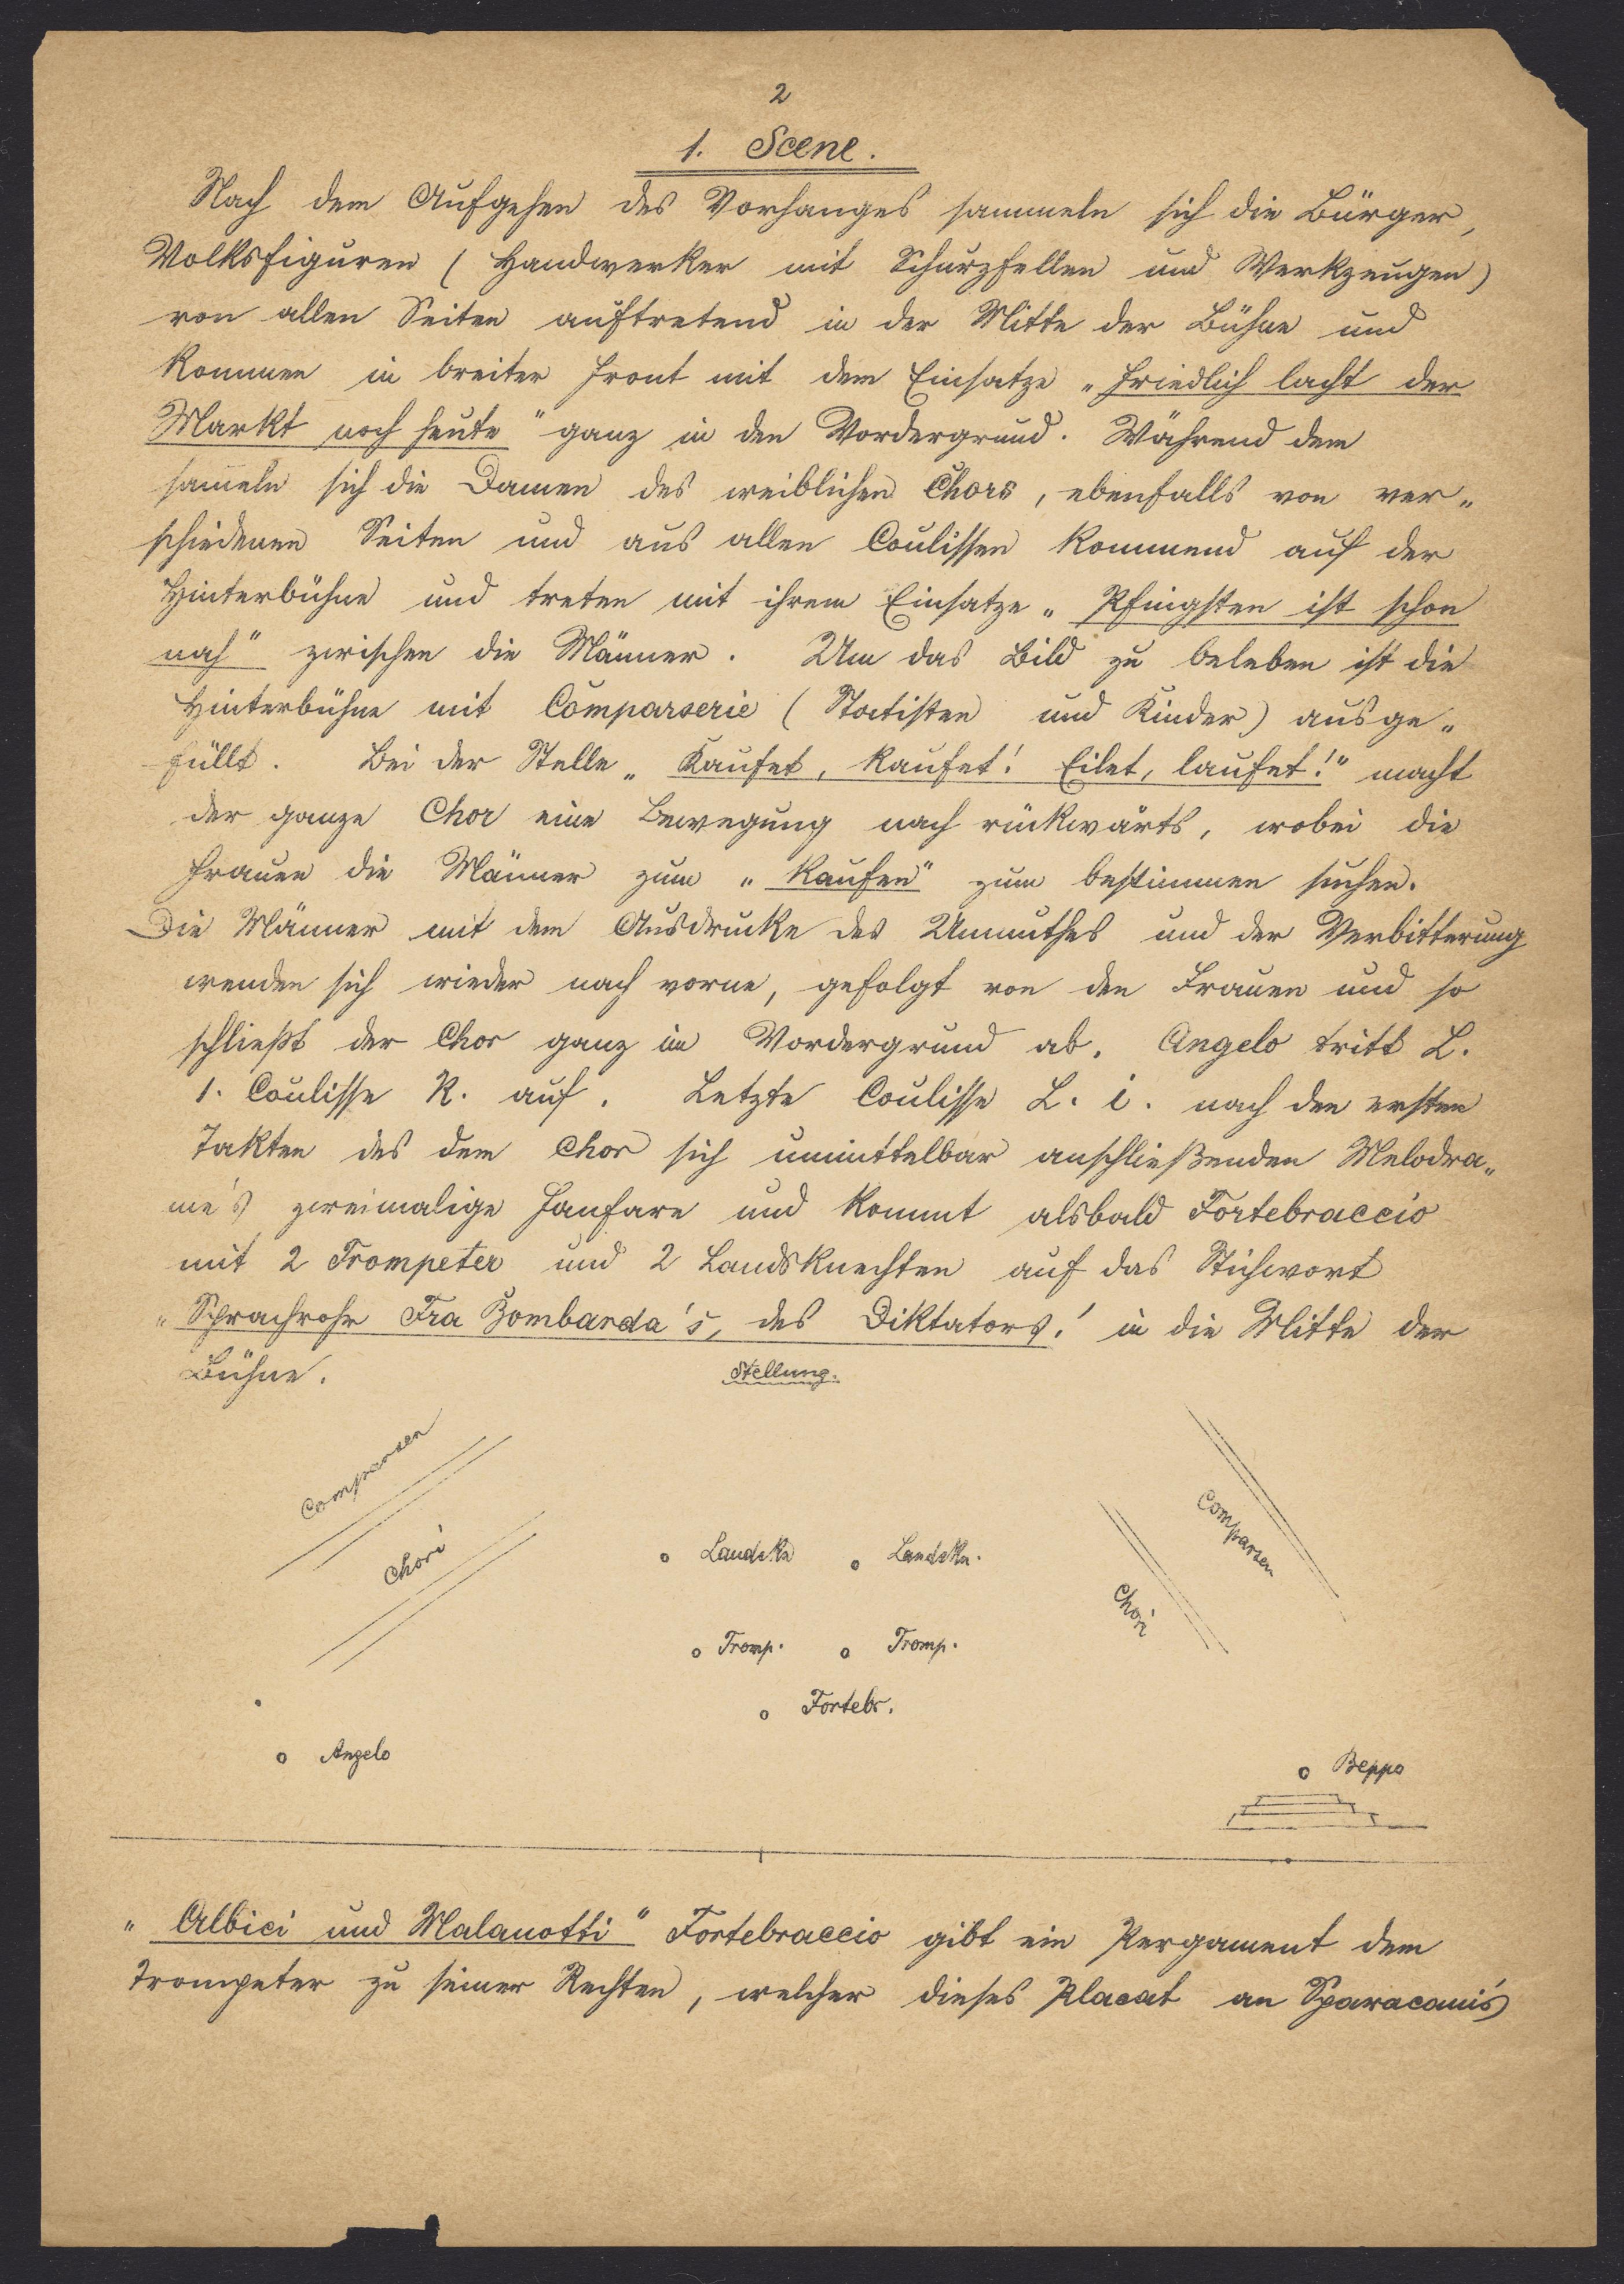 2
1. Scene.
Nach dem Aufgehen des Vorhanges sammeln sich die Bürger,
Volksfiguren (Handwerker mit Schurzfellen und Werkzeugen)
von allen Seiten auftretend in der Mitte der Bühne und
kommen in breiter Front mit dem Einsatze „Friedlich lacht der
Markt noch heute" ganz in den Vordergrund. Während dem
sam̅eln sich die Damen des weiblichen Chors, ebenfalls von ver„
schiedenen Seiten und aus allen Coulissen kommend auf der
Hinterbühne und treten mit ihrem Einsatze „Pfingsten ist schon
nah" zwischen die Männer. Um das Bild zu beleben ist die
Hinterbühne mit Comparserie (Statisten und Kinder) ausge„
füllt. Bei der Stelle „Kaufet, kaufet! Eilet, laufet!" macht
der ganze Chor eine Bewegung nach rückwärts, wobei die
Frauen die Männer zum „Kaufen" zum bestimmen suchen.
Die Männer mit dem Ausdrucke des Unmuthes und der Verbitterung
wenden sich wieder nach vorne, gefolgt von den Frauen und so
schließt der Chor ganz im Vordergrund ab. Angelo tritt L.
1. Coulisse R. auf. Letzte Coulisse L. i. nach den ersten
Takten des dem Chor sich unmittelbar anschließenden Melodra„
me's zweimalige Fanfare und kommt alsbald Fortebraccio
mit 2 Trompeter und 2 Landsknechten auf das Stichwort
„Sprachrohr Fra Bombarda's, des Diktators!' in die Mitte der
Bühne.
Stellung.
Comparsen
Chori
Landskn
Landskn.
Comparsen
Chori
Tromp.
Tromp.
Fortebr.
Angelo
Beppo
„Albici und Malanotti" Fortebraccio gibt ein Pergament dem
Trompeter zu seiner Rechten, welcher dieses Placat an Sparacani's